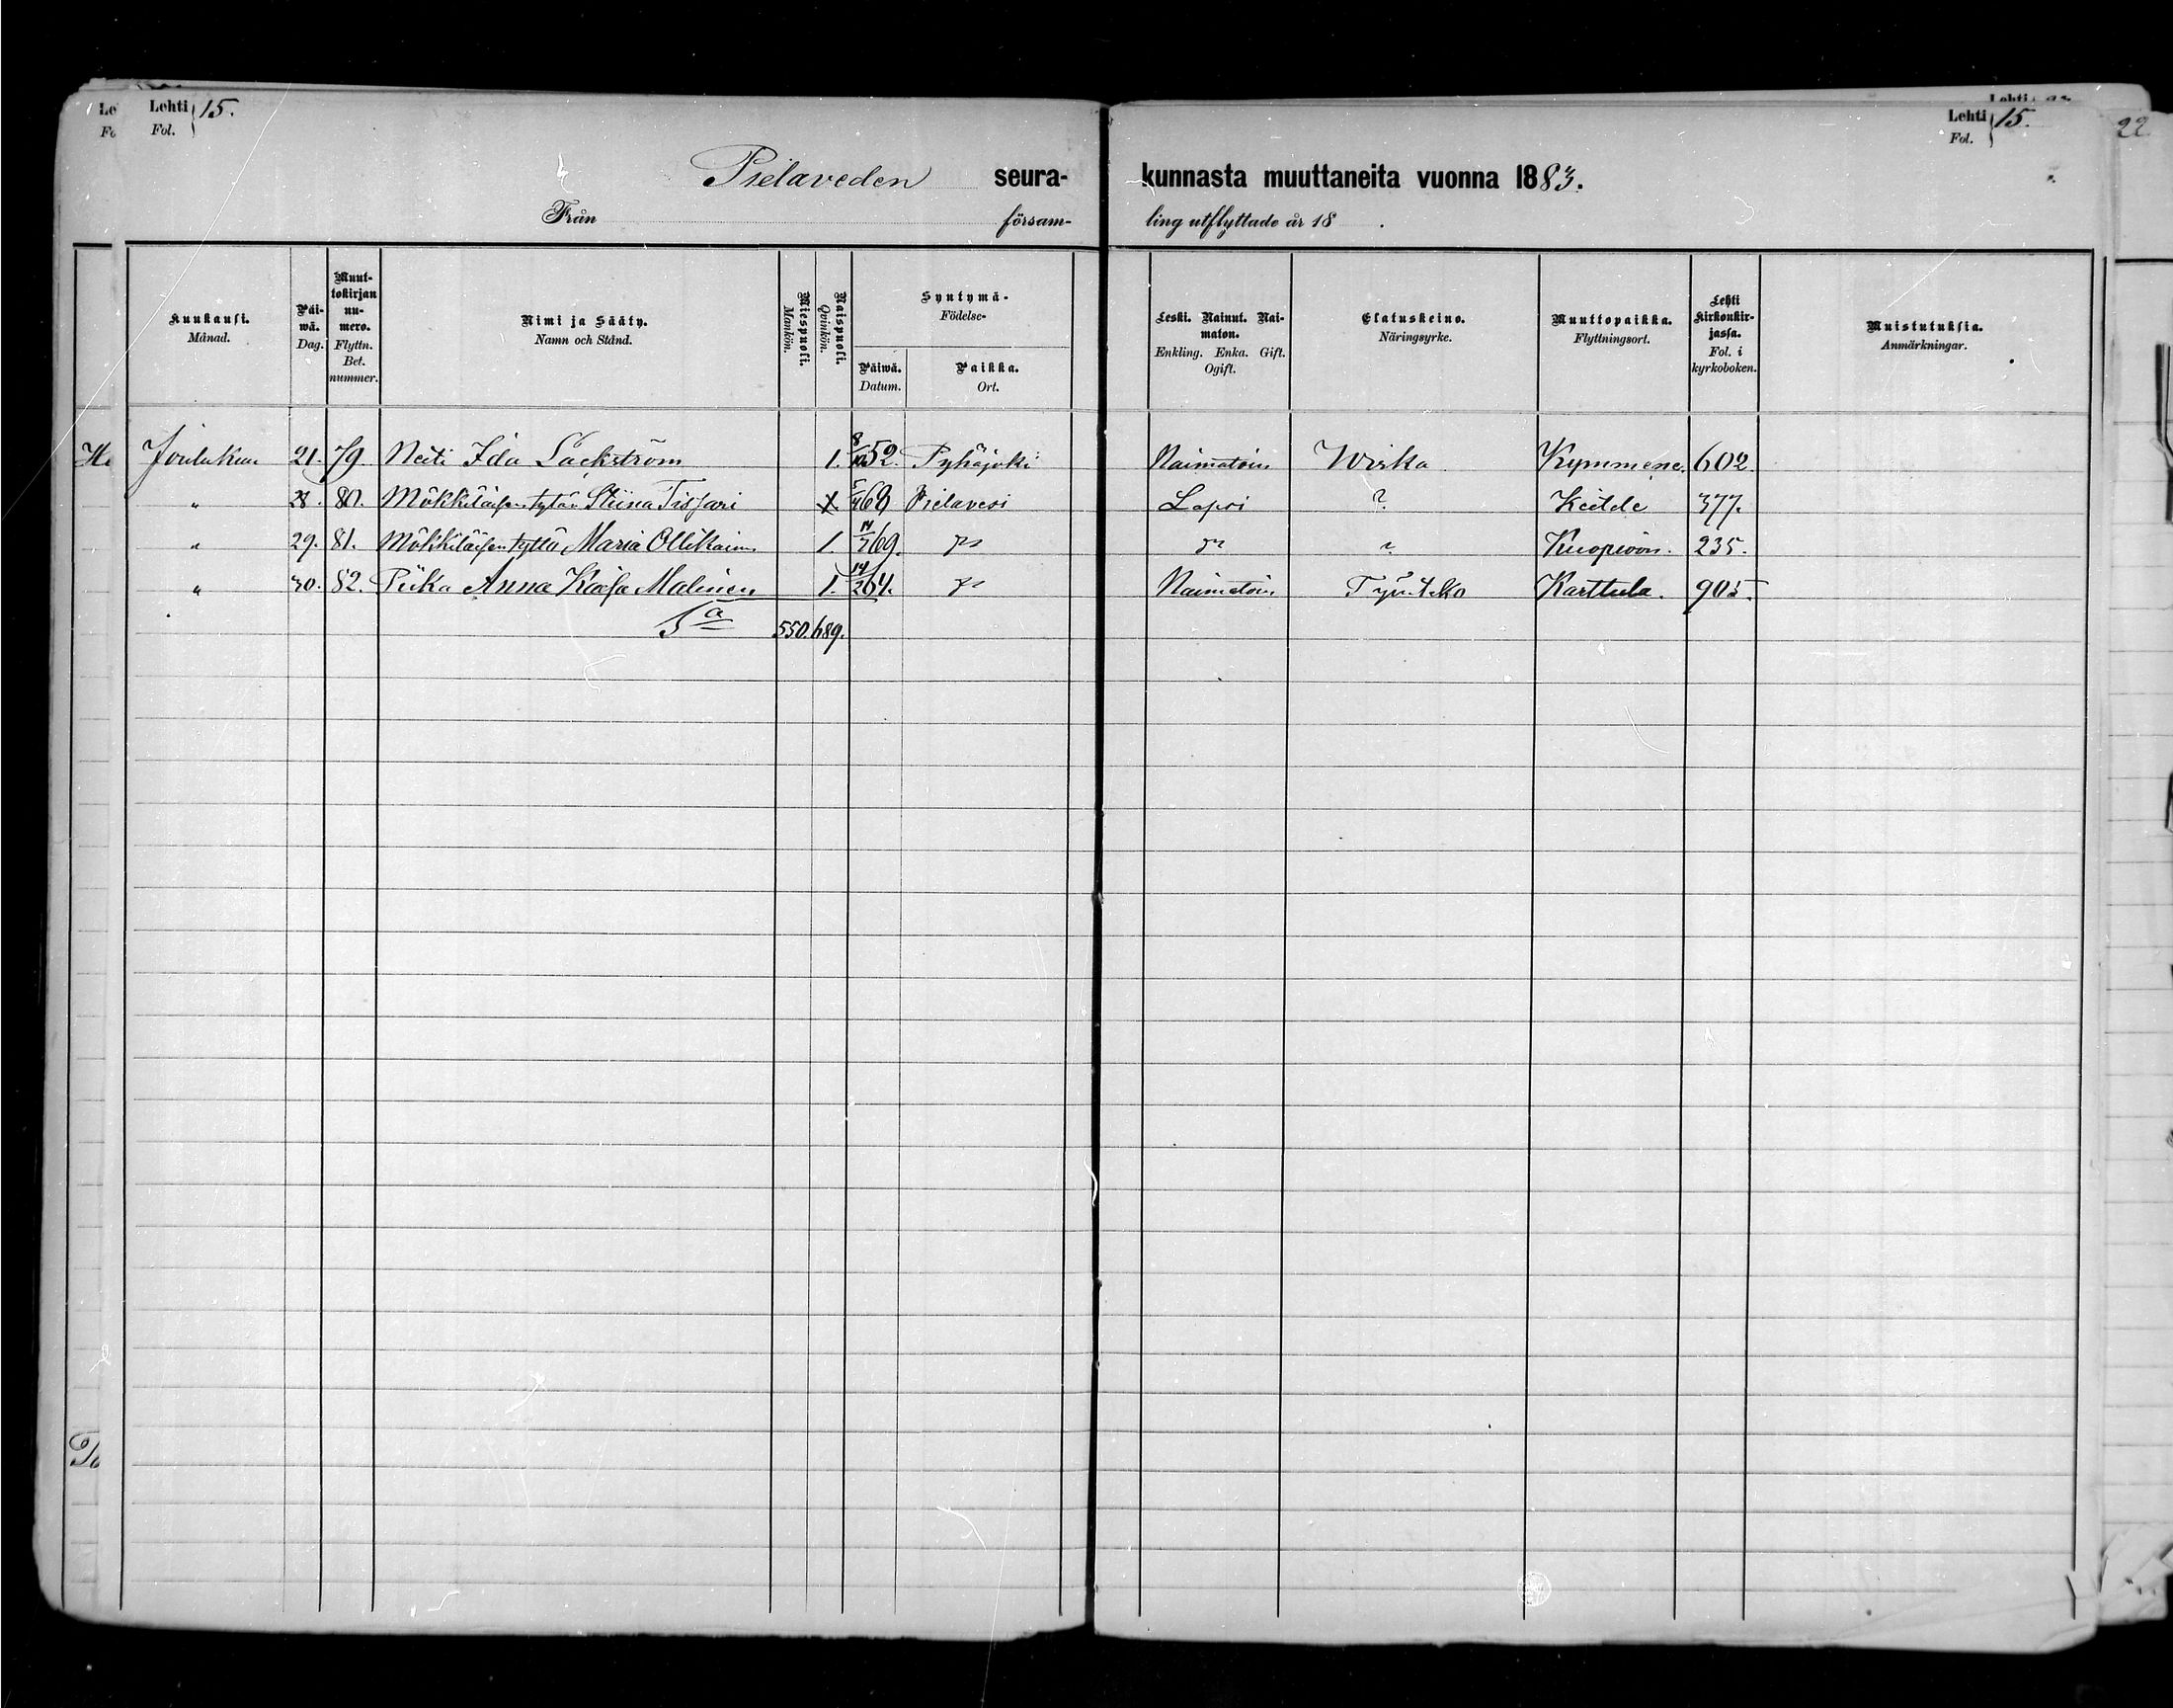 Lehti Fol. 15. Lehti Fol. 15. 22
Pielaveden seura- kunnasta muuttaneita vuonna 1883.
Från försam- ling utflyttade år 18 .
Kuukausi. Månad. Päi-wä. Dag. Muut-tokirjan nu-mero. Flyttn. Bet. nummer. Nimi ja Sääty. Namn och Stånd. Miespuoli. Mankön. Naispuoli. Quinkön. Syntymä- Födelse- Päiwä. Datum. Paikka. Ort. Leski. Nainut. Nai-maton. Enkling. Enka. Gift. Ogift. Elatuskeino. Näringsyrke. Muuttopaikka. Flyttningsort. Lehti Kirkonkir-jassa. Fol. i kyrkoboken. Muistutuksia. Anmärkningar.
Joulukuu 21. 79 Neiti Ida Lackström 1. 8/10 52. Pyhäjoki Naimatoin Wirka Kymmene. 602.
" 28. 80. Mökkiläisen tytär Stiina Tissari 68 Pielavesi Lapsi ? Keitele 377.
" 29. 81. Mökkiläisen tyttö Maria Ollikain. 1. 14/7 69. ? Kuopioon. 235.
" 30. 82. Piika Anna Kaisa Malinen 1. 14/2 64. Naimatoin Karttula. 905.
Sa 550. 689.